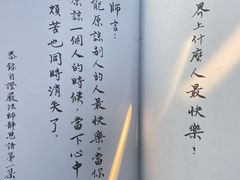 界上什麼人最快樂？
師言：
能原諒別人的人最快樂。當你
原諒一個人的時候，當下心中
煩苦也同時消失了。
恭錄自證嚴法師靜思語第一集